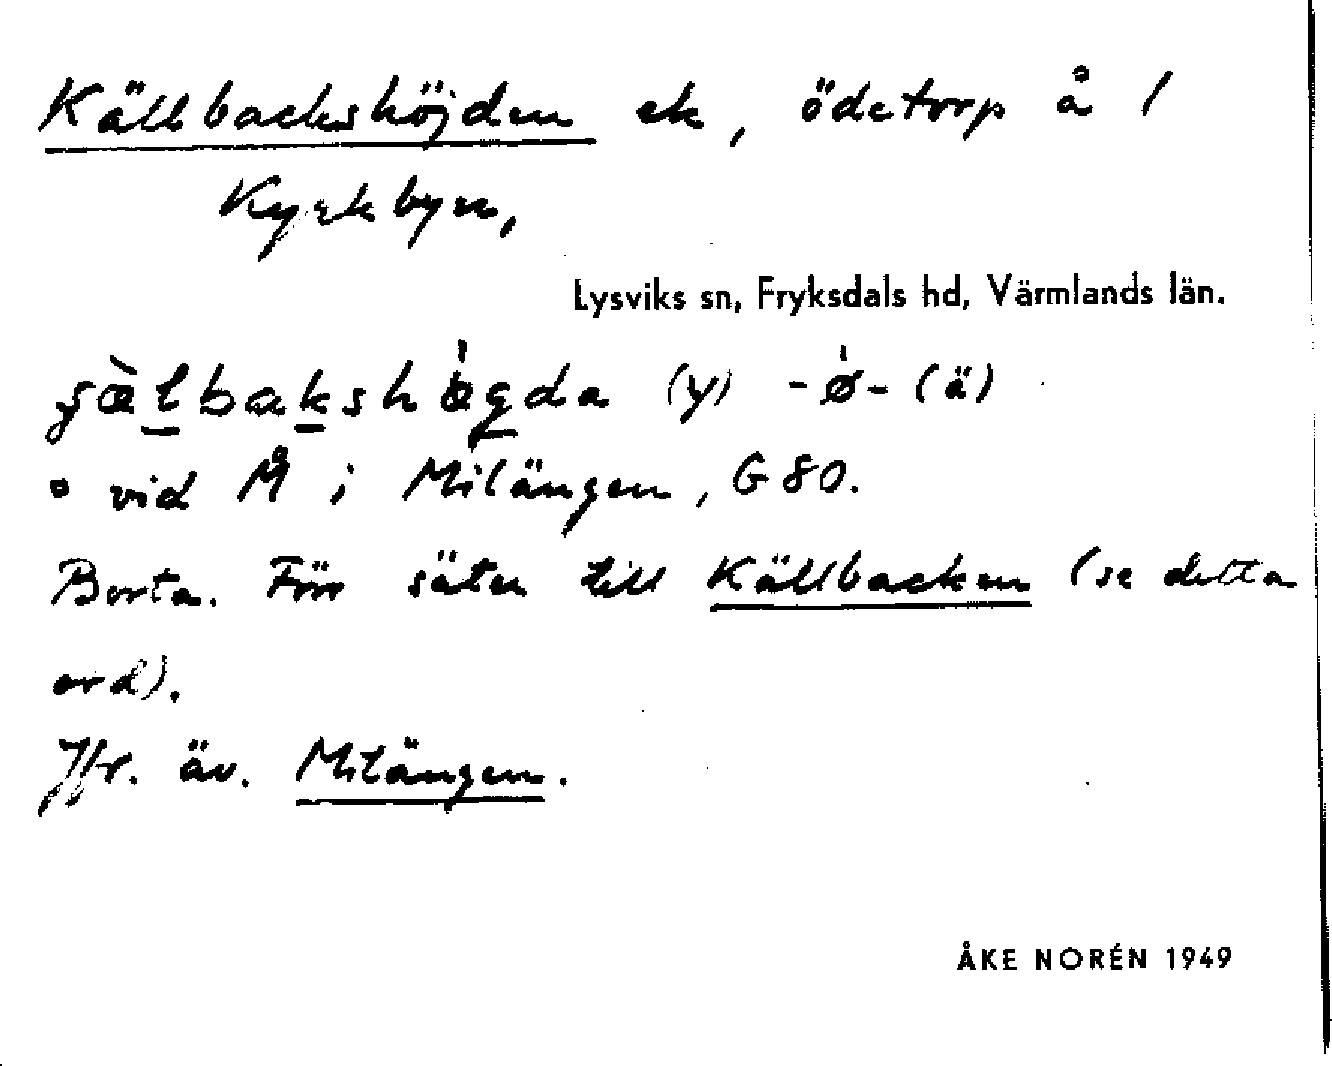 Källbackshöjden ek, ödetorp å 1
Kyrkbyn,
Lysviks sn, Fryksdals hd, Värmlands län.
(y) -ø- (ä)
▫ vid Å i Milängen, G 80.
Borta. Förr säter till Källbacken (se detta
ord).
Jfr. äv. Milängen.
ÅKE NORÉN 1949